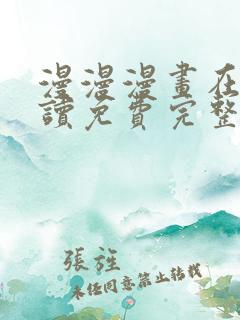 漫漫漫畫在
讀免費完整
張旌
未經同意禁止轉載